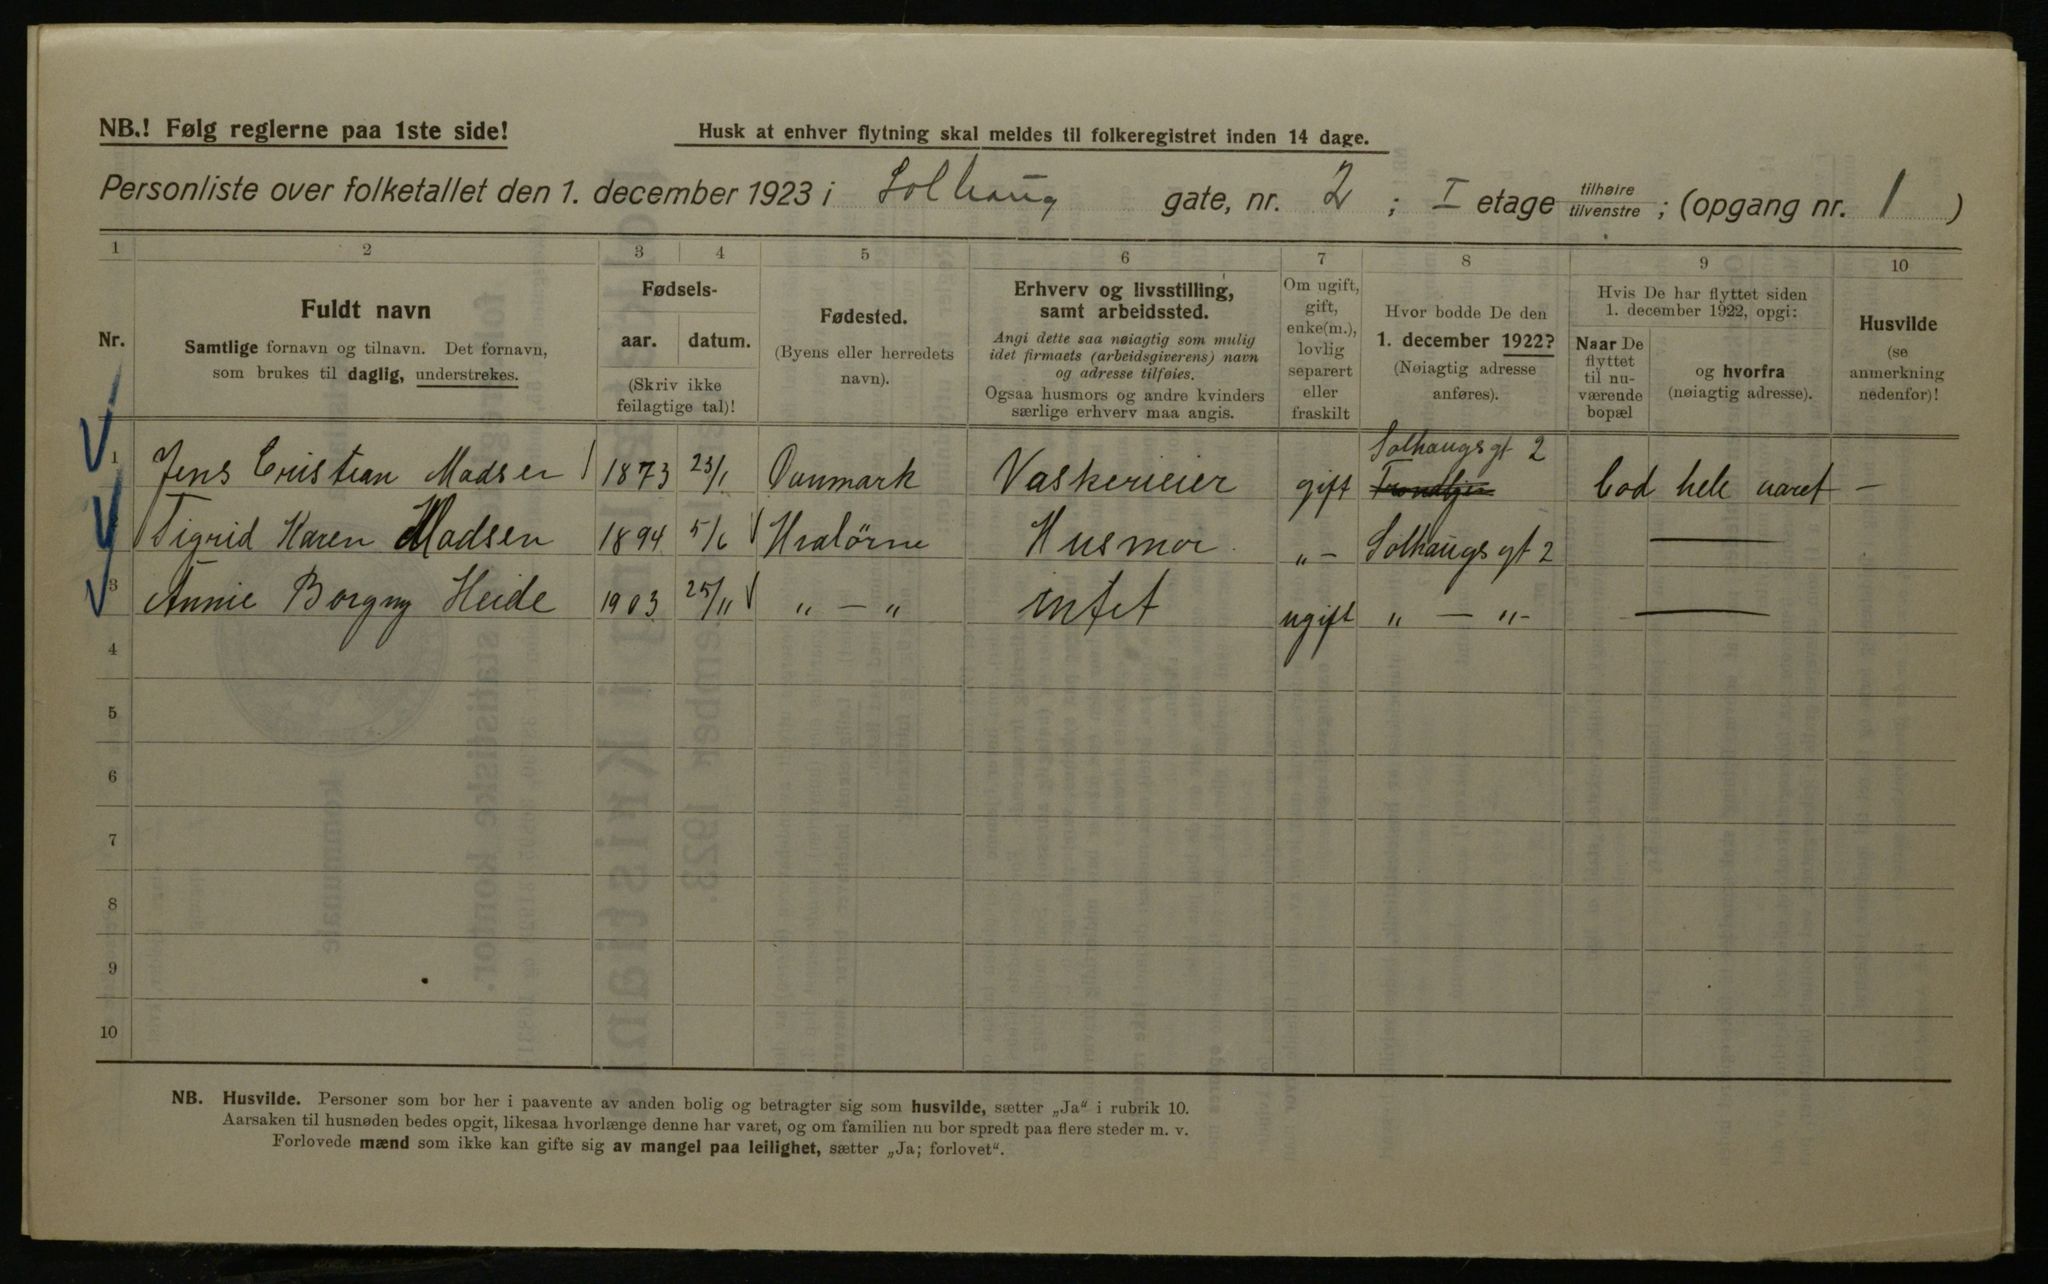 NB.! Følg reglerne paa 1ste side!
Husk at enhver flytning skal meldes til folkeregistret inden 14 dage.
Personliste over folketallet den 1. december 1923 i Solhaug gate, nr. 2 ; I etage tilhøire tilvenstre ; (opgang nr. 1 )
1 2 3 4 5 6 7 8 9 10
Nr.
Fuldt navn
Samtlige fornavn og tilnavn. Det fornavn,
som brukes til daglig, understrekes.
Fødsels-
aar. datum.
(Skriv ikke
feilagtige tal)!
Fødested.
(Byens eller herredets
navn).
Erhverv og livsstilling,
samt arbeidssted.
Angi dette saa nøiagtig som mulig
idet firmaets (arbeidsgiverens) navn
og adresse tilføies.
Ogsaa husmors og andre kvinders
særlige erhverv maa angis.
Om ugift,
gift,
enke(m.),
lovlig
separert
eller
fraskilt
Hvor bodde De den
1. december 1922?
(Nøiagtig adresse
anføres).
Hvis De har flyttet siden
1. december 1922, opgi:
Naar De
flyttet
til nu-
værende
bopæl
og hvorfra
(nøiagtig adresse).
Husvilde
(se
anmerkning
nedenfor)!
Solhaugsgt 2
1 Jens Cristian Madsen 1873 23/1 Danmark Vaskerieier gift Trondhjem bod hele aaret —
Sigrid Karen Madsen 1894 5/6 Husmor „ – Solhaugsgt 2 —
3 Annie Borgny Heide 1903 25/11 „ — „ intet ugift „ — „ —
4
5
6
7
8
9
10
NB. Husvilde. Personer som bor her i paavente av anden bolig og betragter sig som husvilde, sætter „Ja“ i rubrik 10.
Aarsaken til husnøden bedes opgit, likesaa hvorlænge denne har varet, og om familien nu bor spredt paa flere steder m. v.
Forlovede mænd som ikke kan gifte sig av mangel paa leilighet, sætter „Ja; forlovet“.